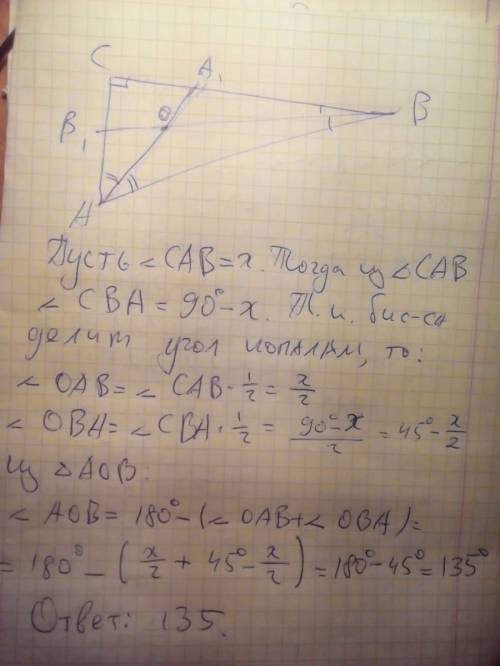 C
A₁
B₁
O
B
A
Пусть ∠ CAB = x. Тогда из △ CAB
∠ CBA = 90° - x. Т.к. бис-са
делит угол пополам, то:
∠ OAB = ∠ CAB · 1/2 = x/2
∠ OBA = ∠ CBA · 1/2 = (90° - x)/2 = 45° - x/2
Из △ AOB:
∠ AOB = 180° - (∠ OAB + ∠ OBA) =
= 180° - (x/2 + 45° - x/2) = 180° - 45° = 135°
Ответ: 135.